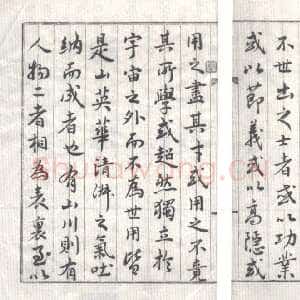 不世出之士者以功業
或以節義或以高隱或
用之盡其才或用之不竟
其所學或超然獨立於
宇宙之外而不爲世用皆
是山英華清淋之氣吐
納而成者也有山川則有
人物二者相爲表裏至以